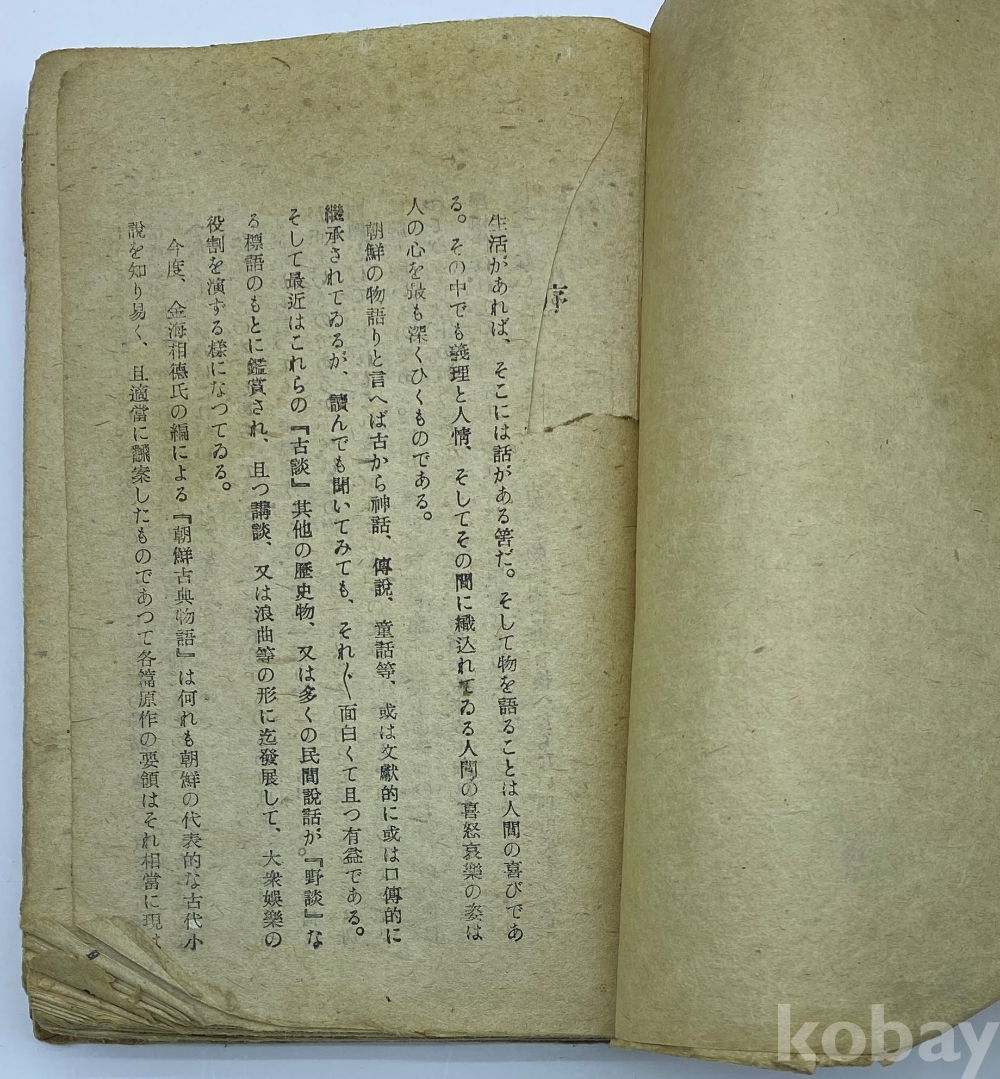 序
生活があれば、そこには話がある筈だ。そして物を語ることは人間の喜びであ
る。その中でも義理と人情、そしてその間に織込れてゐる人間の喜怒哀樂の姿は
人の心を最も深くひくものである。
朝鮮の物語りと言へば古から神話、傳說、童話等、或は文獻的に或は口傳的に
繼承されてゐるが、讀んでも聞いてみても、それ〲面白くて且つ有益である。
そして最近はこれらの『古談』其他の歷史物、又は多くの民間說話が『野談』な
る標語のもとに鑑賞され、且つ講談、又は浪曲等の形に迄發展して、大衆娛樂の
役割を演ずる樣になつてゐる。
今度、金海相德氏の編による『朝鮮古典物語』は何れも朝鮮の代表的な古代小
說を知り易く、且適當に飜案したものであつて各篇原作の要領はそれ相當に現は
kobay